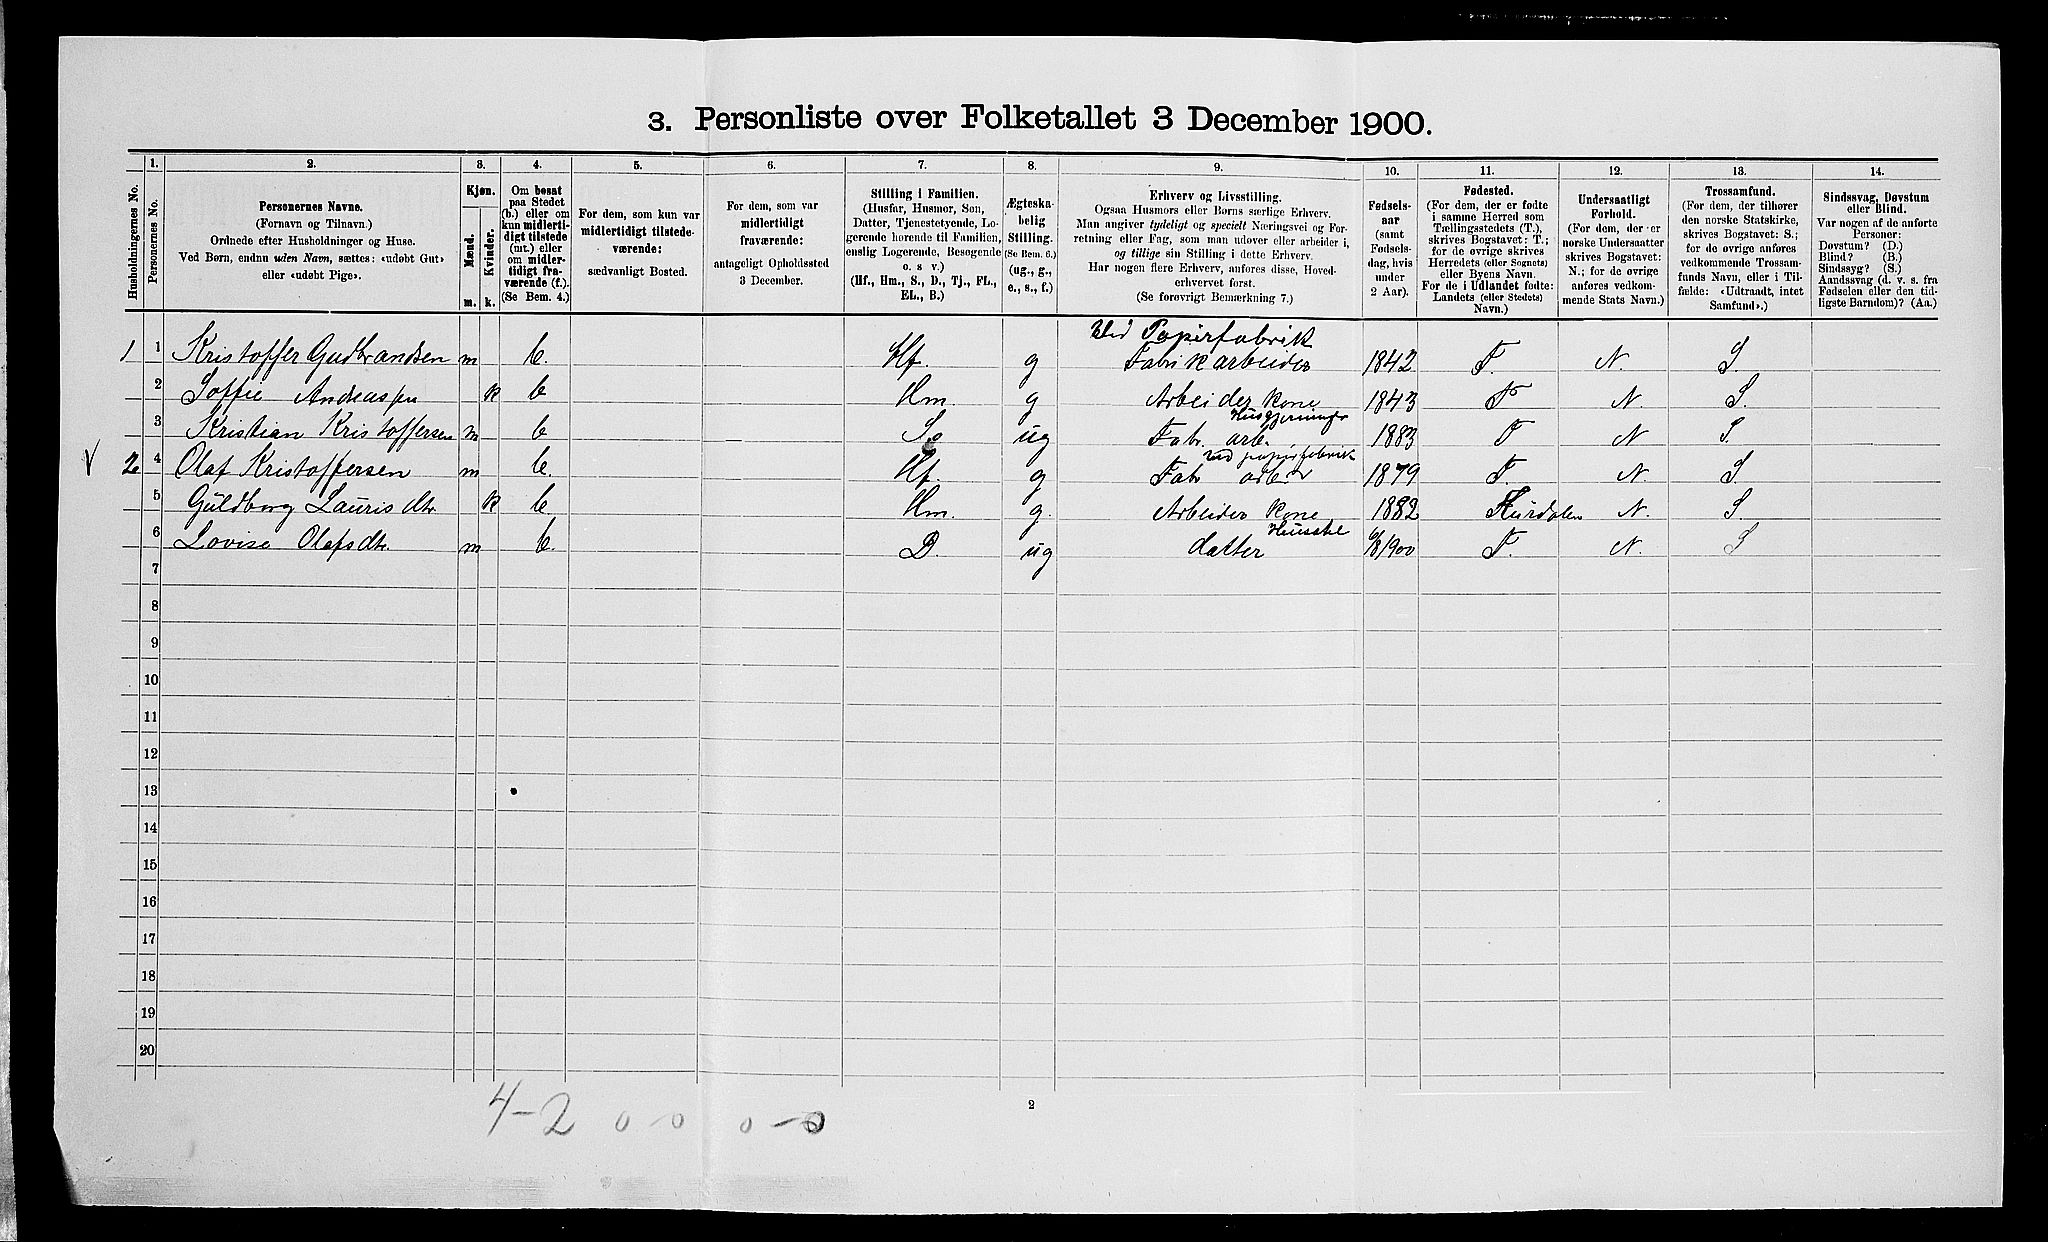 3. Personliste over Folketallet 3 December 1900.
Husholdningernes No.
1.
Personernes No.
2.
Personernes Navne.
(Fornavn og Tilnavn.)
Ordnede efter Husholdninger og Huse.
Ved Børn, endnu uden Navn, sættes: «udøbt Gut»
eller «udøbt Pige».
3.
Kjøn.
Mænd.
Kvinder.
m. k.
4.
Om bosat
paa Stedet
(b.) eller om
kun midlerti-
digt tilstede
(mt.) eller
om midler-
tidigt fra-
værende (f.).
(Se Bem. 4.)
5.
For dem, som kun var
midlertidigt tilstede-
værende:
sædvanligt Bosted.
6.
For dem, som var
midlertidigt
fraværende:
antageligt Opholdssted
3 December.
7.
Stilling i Familien.
(Husfar, Husmor, Søn,
Datter, Tjenestetyende, Lo-
gerende hørende til Familien,
enslig Logerende, Besøgende
o. s v.)
(Hf., Hm., S., D., Tj., FL.,
EL., B.)
8.
Ægteska-
belig
Stilling.
(Se Bem. 6.)
(ug., g.,
e., s., f.)
9.
Erhverv og Livsstilling.
Ogsaa Husmors eller Børns særlige Erhverv.
Man angiver tydeligt og specielt Næringsvei og For-
retning eller Fag, som man udover eller arbeider i,
og tillige sin Stilling i dette Erhverv.
Har nogen flere Erhverv, anføres disse, Hoved-
erhvervet først.
(Se forøvrigt Bemærkning 7.)
10.
Fødsels-
aar
(samt
Fødsels-
dag, hvis
under
2 Aar).
11.
Fødested.
(For dem, der er fødte
i samme Herred som
Tællingsstedets (T.),
skrives Bogstavet: T.;
for de øvrige skrives
Herredets (eller Sognets)
eller Byens Navn.
For de i Udlandet fødte:
Landets (eller Stedets)
Navn.)
12.
Undersaatligt
Forhold.
(For dem, der er
norske Undersaatter
skrives Bogstavet:
N.; for de øvrige
anføres vedkom-
mende Stats Navn.)
13.
Trossamfund.
(For dem, der tilhører
den norske Statskirke,
skrives Bogstavet: S.;
for de øvrige anføres
vedkommende Trossam-
funds Navn, eller i Til-
fælde: «Udtraadt, intet
Samfund».)
14.
Sindssvag, Døvstum
eller Blind.
Var nogen af de anførte
Personer:
Døvstum? (D.)
Blind? (B.)
Sindssyg? (S.)
Aandssvag (d. v. s. fra
Fødselen eller den tid-
ligste Barndom)? (Aa.)
Ved Papirfabrik
1 1 Kristoffer Gudbrandsen m b. Hf. g Fabrikarbeider 1842 T. N. S.
2 Soffie Andreasen k b Hm. g Arbeider kone 1843 T N. S.
Husgjerninger
3 Kristian Kristoffersen m b S. ug Fabr. arb. 1883 T N S.
ved papirfabrik
V 2 4 Olaf Kristoffersen m b. Hf. g Fabr arbr 1879 T. N. S.
5 Guldborg Laurisdtr k b. Hm. g. Arbeider kone 1882 Hurdalen N. S.
Husstel
6 Lovise Olafsdtr. m b. D. ug datter 6/8 1900 T. N. S
7
8
9
10
11
12
13
14
15
16
17
18
19
20
4-2 0-0 0-0
2